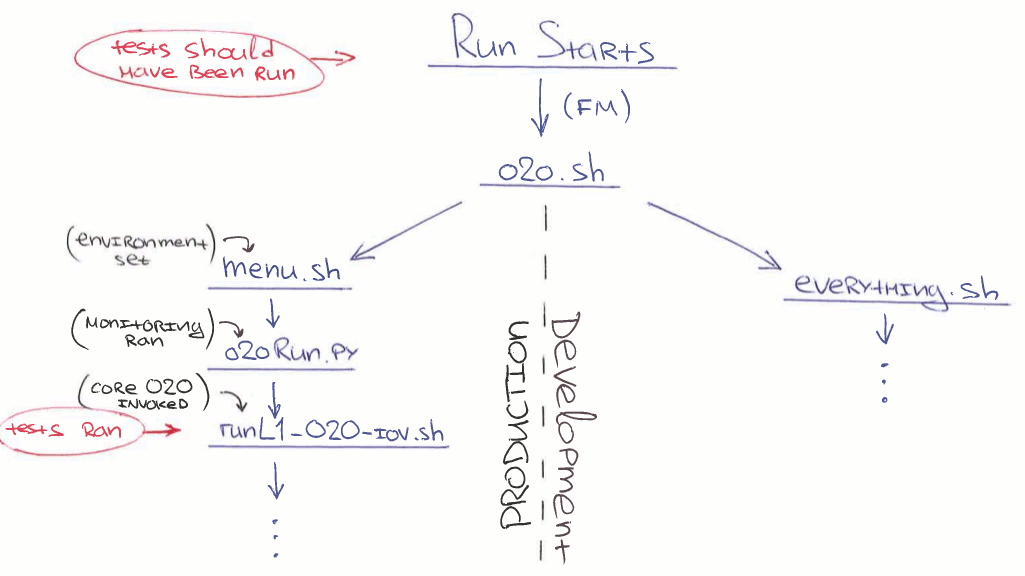 tests should
Have Been Run
Run Starts
(FM)
o2o.sh
(environment
set)
menu.sh
everything.sh
(Monitoring
Ran)
o2oRun.py
(core O2O
invoked)
tests Ran
runL1-O2O-iov.sh
PRODUCTION
Development